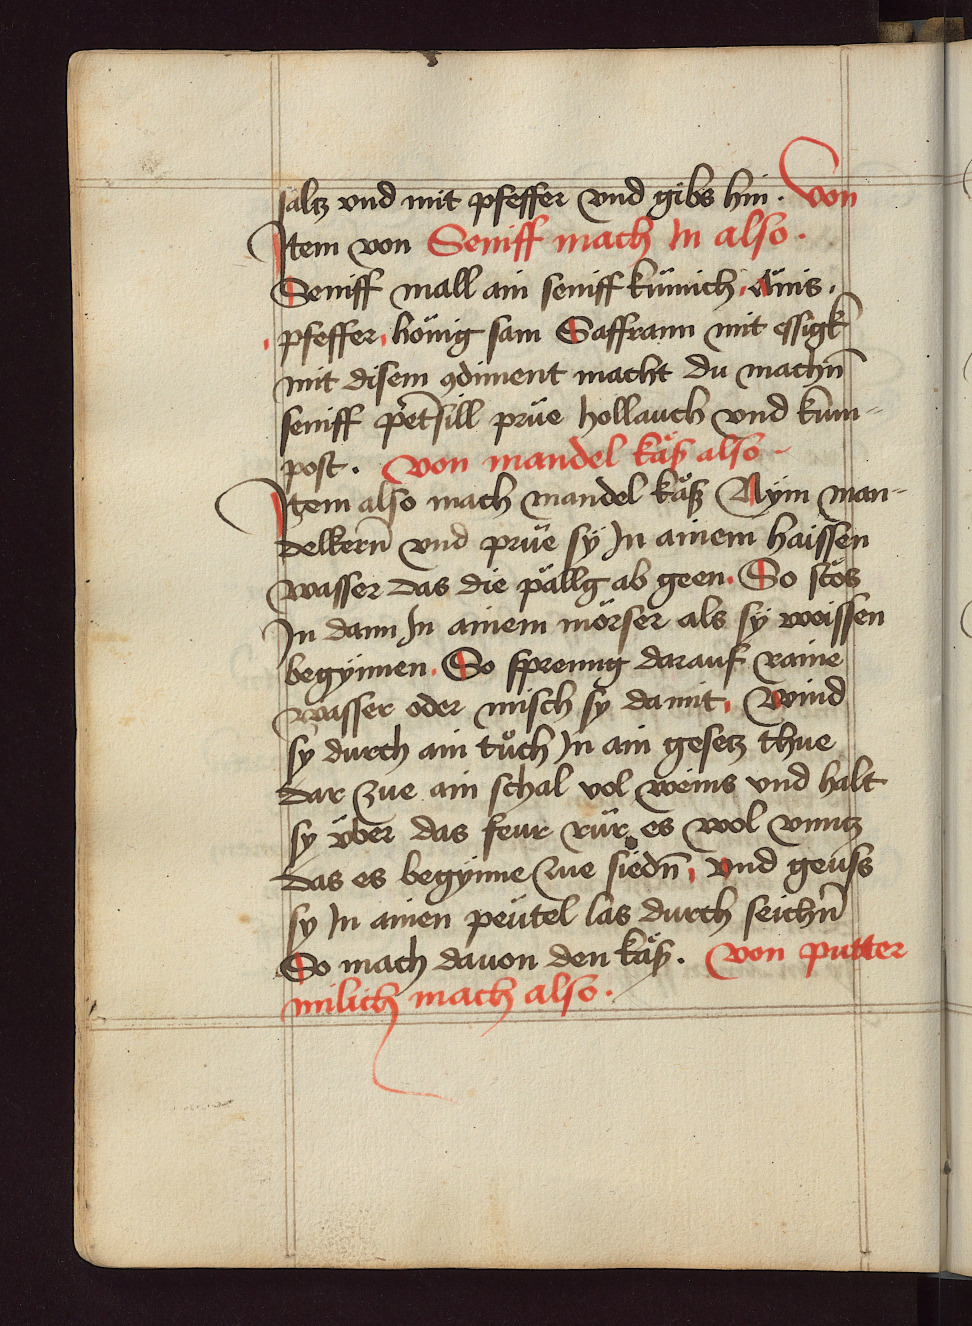 saltz vnd mit pfeffer vnd gibs hin . Von
Item von Seniff mach In also .
Seniff mall ain seniff kümich . Änis .
pfeffer . hönig sam Saffrann mit essigk
mit disem ꝯdiment macht du machn̄
seniff pet̄sill prüe hollauch vnd kum-
post . Von mandel käß also .
Item also mach mandel käß Nÿm man-
delkern̄ vnd prüe sÿ In ainem haissen
wasser das die pällg ab geen . So stös
In dann In ainem mörser als sÿ weissen
begÿnnen . So sprenng darauf raine
wasser oder misch sy damit . Wind
sÿ durch ain tůch In ain gesetz thue
dar zue ain schal vol weins vnd halt
sy über das feur rür es wol vnntz
das es begÿnne zue siedn̄ . Vnd geüss
sy In ainen peütel las durch seichn̄
So mach dauon den käß . Von putter
milich mach also .